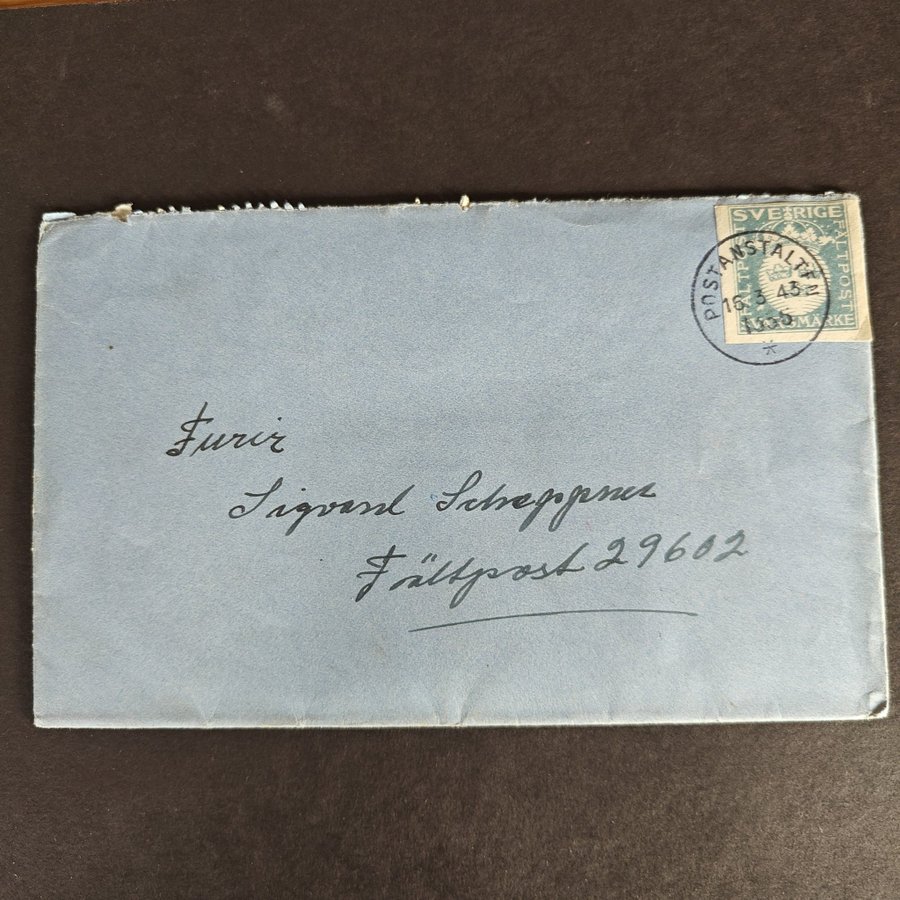 SVERIGE
FÄLTPOST
FÄLTPOST
POSTANSTALTEN
16 3 43
1355
Furir
Sigvard Scheppner
Fältpost 29602